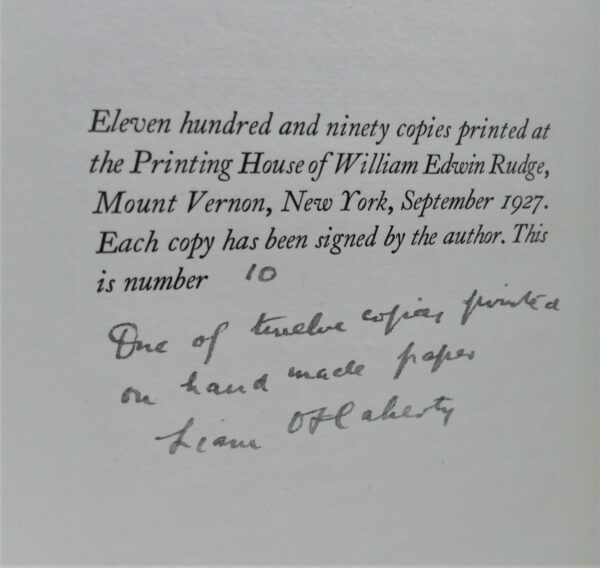 Eleven hundred and ninety copies printed at
the Printing House of William Edwin Rudge,
Mount Vernon, New York, September 1927.
Each copy has been signed by the author. This
is number 10
One of twelve copies printed
on hand made paper
Liam O'Flaherty